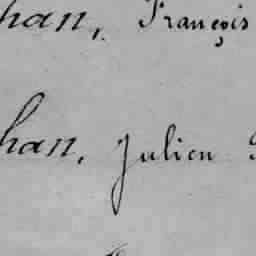 han, François
han, Julien